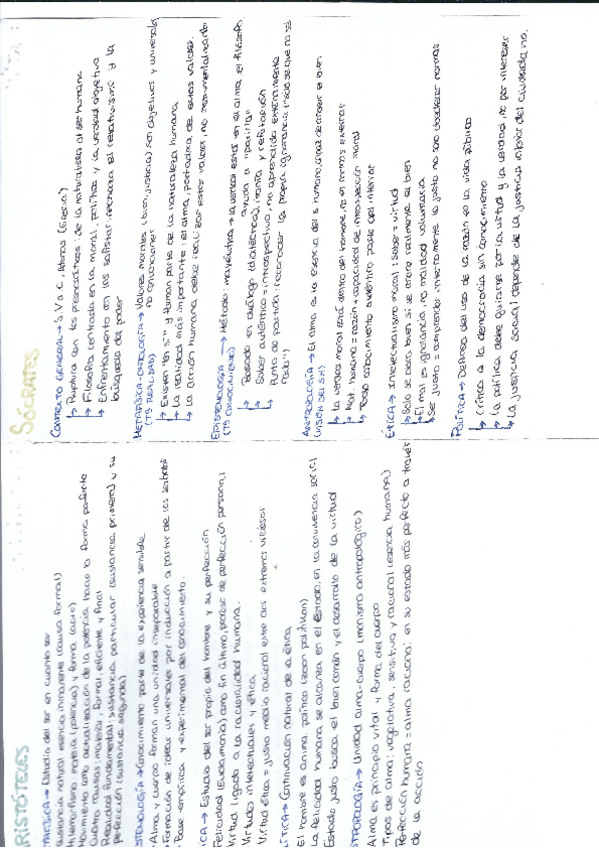 SÓCRATES
CONTEXTO GENERAL → S. V a.C, Atenas (Grecia)
↳ Ruptura con los presocráticos: de la naturaleza al ser humano
↳ Filosofía centrada en la moral, política y la verdad objetiva
↳ Enfrentamiento con los sofistas: rechaza el relativismo y la
búsqueda del poder
METAFÍSICA-ONTOLOGÍA → Valores morales (bien, justicia) son objetivos y universales
(TS REALIDAD) no convenciones
↳ Existen "en sí" y forman parte de la naturaleza humana
↳ La realidad más importante: el alma, portadora de estos valores.
↳ La acción humana debe realizar estos valores, no instrumentalizarlos
EPISTEMOLOGÍA → Método: mayéutica → la verdad está en el alma, el filósofo
(TS CONOCIMIENTO) ayuda a "parirla"
↳ Basado en diálogo (dialéctica), ironía y refutación
↳ Saber auténtico = introspectivo, no aprendido externamente
↳ Punto de partida: reconocer la propia ignorancia ("sólo sé que no sé
nada")
ANTROPOLOGÍA → El alma es la esencia del s. humano, capaz de conocer el bien
(VISIÓN DEL SH)
↳ La verdad moral está dentro del hombre, no en normas externas
↳ Nat. humana = razón + capacidad de introspección moral
↳ Todo conocimiento auténtico parte del interior
ÉTICA → Intelectualismo moral: saber = virtud
↳ Solo se obra bien si se conoce realmente el bien
↳ El mal es ignorancia, no maldad voluntaria
↳ Ser justo = comprender interiormente lo justo no solo obedecer normas
POLÍTICA → Defensa del uso de la razón en la vida pública
↳ Crítica a la democracia sin conocimiento
↳ La política debe guiarse por la virtud y la verdad, no por intereses
↳ La justicia social depende de la justicia interior del ciudadano.
RISTÓTELES
TAFÍSICA → Estudio del ser en cuanto ser
sustancia natural esencia inmanente (causa formal)
Hilemorfismo: materia (potencia) y forma (acto)
Movimiento como actualización de la potencia hacia la forma
Cuatro causas: material, formal, eficiente y final
Realidad fundamental: sustancia particular (sustancia primera) y su
perfección (sustancia segunda)
STEMOLOGÍA → Conocimiento parte de la experiencia sensible
Alma y cuerpo forman una unidad inseparable
Formación de ideas universales por inducción a partir de los sentidos
Base empírica y experimental del conocimiento.
ICA → Estudio del ser propio del hombre y su perfección
Felicidad (Eudaimonía) como fin último, proceso de perfección personal
Virtud ligada a la racionalidad humana.
Virtudes intelectuales y éticas
Virtud ética = justo medio racional entre dos extremos viciosos
ÍTICA → Continuación natural de la ética
El hombre es animal político (zoon politikon)
La felicidad humana se alcanza en el Estado, en la convivencia social
Estado justo busca el bien común y el desarrollo de la virtud
TROPOLOGÍA → Unidad alma-cuerpo (monismo antropológico)
Alma es principio vital y forma del cuerpo
Tipos de alma: vegetativa, sensitiva y racional (esencia humana)
Perfección humana = alma racional en su estado más perfecto a través
de la acción